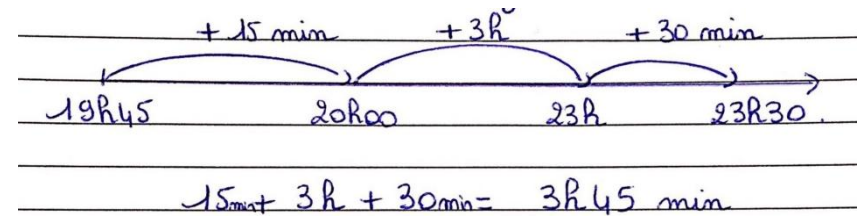 + 15 min + 3h + 30 min
19h45 20h00 23h 23h30.
15min+ 3h + 30min= 3h45 min